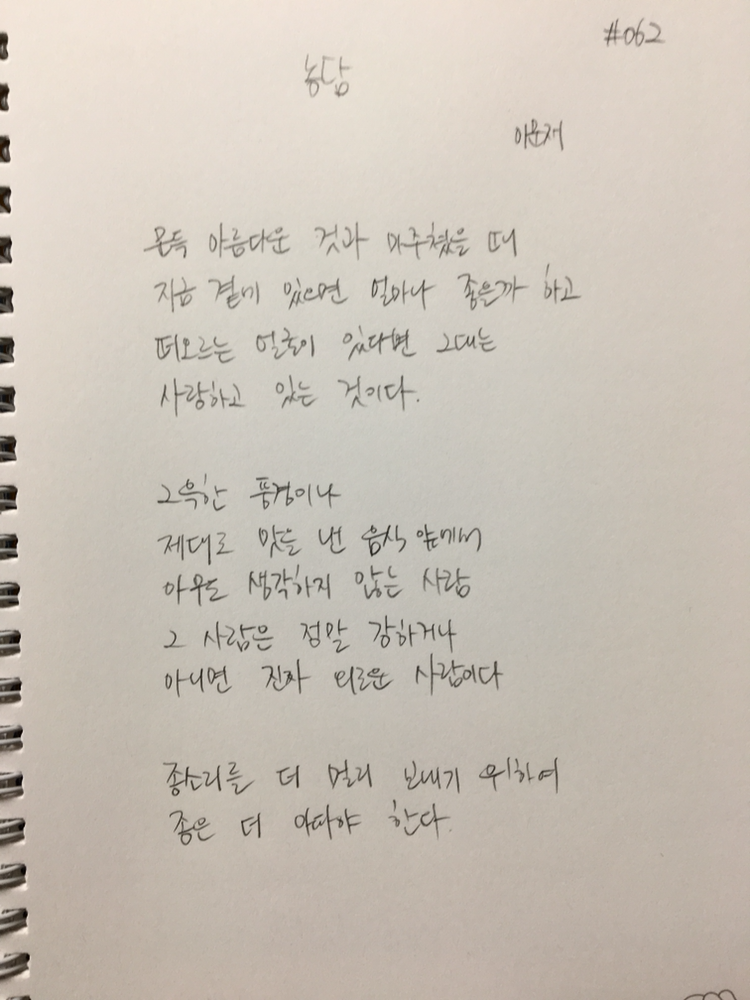 #062
농담
이문재
문득 아름다운 것과 마주쳤을 때
지금 곁에 있으면 얼마나 좋을까 하고
떠오르는 얼굴이 있다면 그대는
사랑하고 있는 것이다.
그윽한 풍경이나
제대로 맛을 낸 음식 앞에서
아무도 생각하지 않는 사람
그 사람은 정말 강하거나
아니면 진짜 외로운 사람이다
종소리를 더 멀리 보내기 위하여
종은 더 아파야 한다.